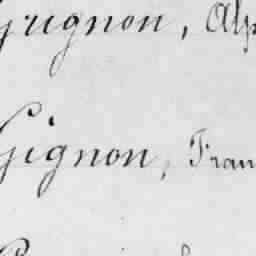 Grignon, Alp
Gignon, Fran